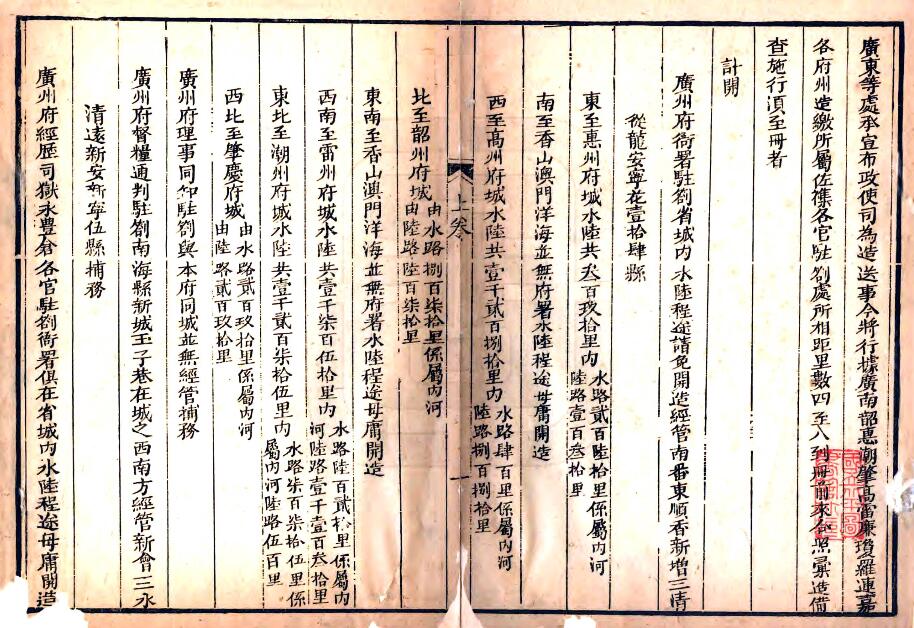 廣東等處承宣布政使司為造送事今將行據廣南韶惠潮肇高雷廉瓊羅連嘉
各府州造繳所屬佐雜各官駐劄處所相距里數四至八到冊前來合照彙造備
查施行須至冊者
計開
廣州府衙署駐劄省城內水陸程途請免開造經管南番東順香新增三清
從龍安寧花壹拾肆縣
東至惠州府城水陸共叁百玖拾里內水路貳百陸拾里係屬內河
陸路壹百叁拾里
南至香山澳門洋海並無府署水陸程途毋庸開造
西至高州府城水陸共壹千貳百捌拾里內水路肆百里係屬內河
陸路捌百捌拾里
上卷
一
北至韶州府城由水路捌百柒拾里係屬內河
由陸路陸百柒拾里
東南至香山澳門洋海並無府署水陸程途毋庸開造
西南至雷州府城水陸共壹千柒百伍拾里內水路陸百貳拾里係屬內
河陸路壹千壹百叁拾里
東北至潮州府城水陸共壹千貳百柒拾伍里內水路柒百柒拾伍里係
屬內河陸路伍百里
西北至肇慶府城由水路貳百玖拾里係屬內河
由陸路貳百玖拾里
廣州府理事同知駐劄與本府同城並無經管捕務
廣州府督糧通判駐劄南海縣新城玉子巷在城之西南方經管新會三水
清遠新安新寧伍縣捕務
廣州府經歷司獄永豐倉各官駐劄衙署俱在省城內水陸程途毋庸開造